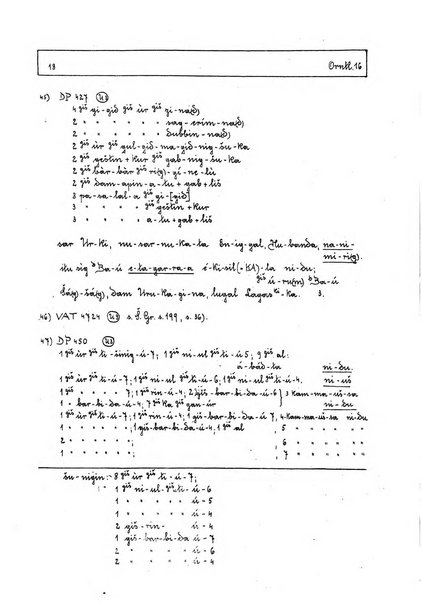 18 Orntl. 16
45) DP 427 (U3)
4 giš gi-gid giš ùr giš gi-na(d)
2 " " " " " sag-erim-na(d)
2 " " " " " dubbin-na(d)
2 giš ùr giš gul-gid-ma-gid-nig-šu-ka
2 giš geštin + kur giš gab-nig-šu-ka
2 giš bàr-bàr giš ri(g)-gi-ne-lù
2 giš dam-apin-a-lu + gab + liš
3 pa-sal-la giš gi-[gid]
3 " " " " giš geštin + kur
3 " " " " a-lu + gab + liš
sar Ur-ki, nu-sar-nu-ka-ta En-ig-gal, Nu-banda, na-ni-
mi-ri(g).
itu sig dBa-ú e-ta-gar-ra-a é-ki-sil(-KA)-la ni-du;
giš ú-ru(n) dBa-ú
Šá(g)-šá(g), dam Uru-ka-gi-na, lugal Lagaš ki-ka. 3.
46) VAT 4724 (U3) s. S. Gr. s. 199, s. 36).
47) DP 450 (U3)
1 giš ùr giš ti-šinig-ú-7; 1 giš ni-ul giš ti-ú 5; 9 giš al:
á-bád-ta ni-du.
1 giš ùr giš ti-ú-7; 1 giš ni-ul giš ti-ú-6; 1 giš ni-ul giš ti-ú-4. ni-uš
1 giš " " " 7; 1 giš rin-ú-4; 2 giš-bar-bi-da-ú-6} 3 kam-ma-uš-sa
1 " bar-bi-da-ú-4; 7 giš Ka giš gan-ùr ni-du
1 giš ùr giš ti-ú-7; 1 giš rin-ú-4; 1 giš-bar-bi-da-ú-7, 4-kam-ma-uš-sa ni-du
1 " " " " " ; 1 giš-bar-bi-da-ú-4, 1 giš al 5 " " " "
2 " " " " " ; 6 " " " "
1 " " " " " ; 7 " " " "
šu-nigin: 8 giš ùr giš ti-ú-7;
1 giš ni-ul-giš ti-ú-6
1 " " " " ú-5
1 " " " " ú-4
2 giš-rin- ú-4
1 giš-bar-bi-da ú-7
2 " " " ú-6
2 " " " ú-4